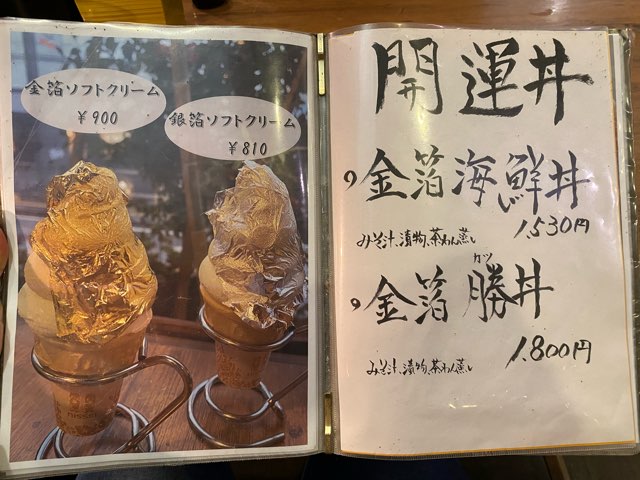 金箔ソフトクリーム
￥900
銀箔ソフトクリーム
￥810
nissei
開運丼
金箔海鮮丼
1,530円
みそ汁、漬物、茶わん蒸し
カツ
金箔勝丼
1,800円
みそ汁、漬物、茶わん蒸し